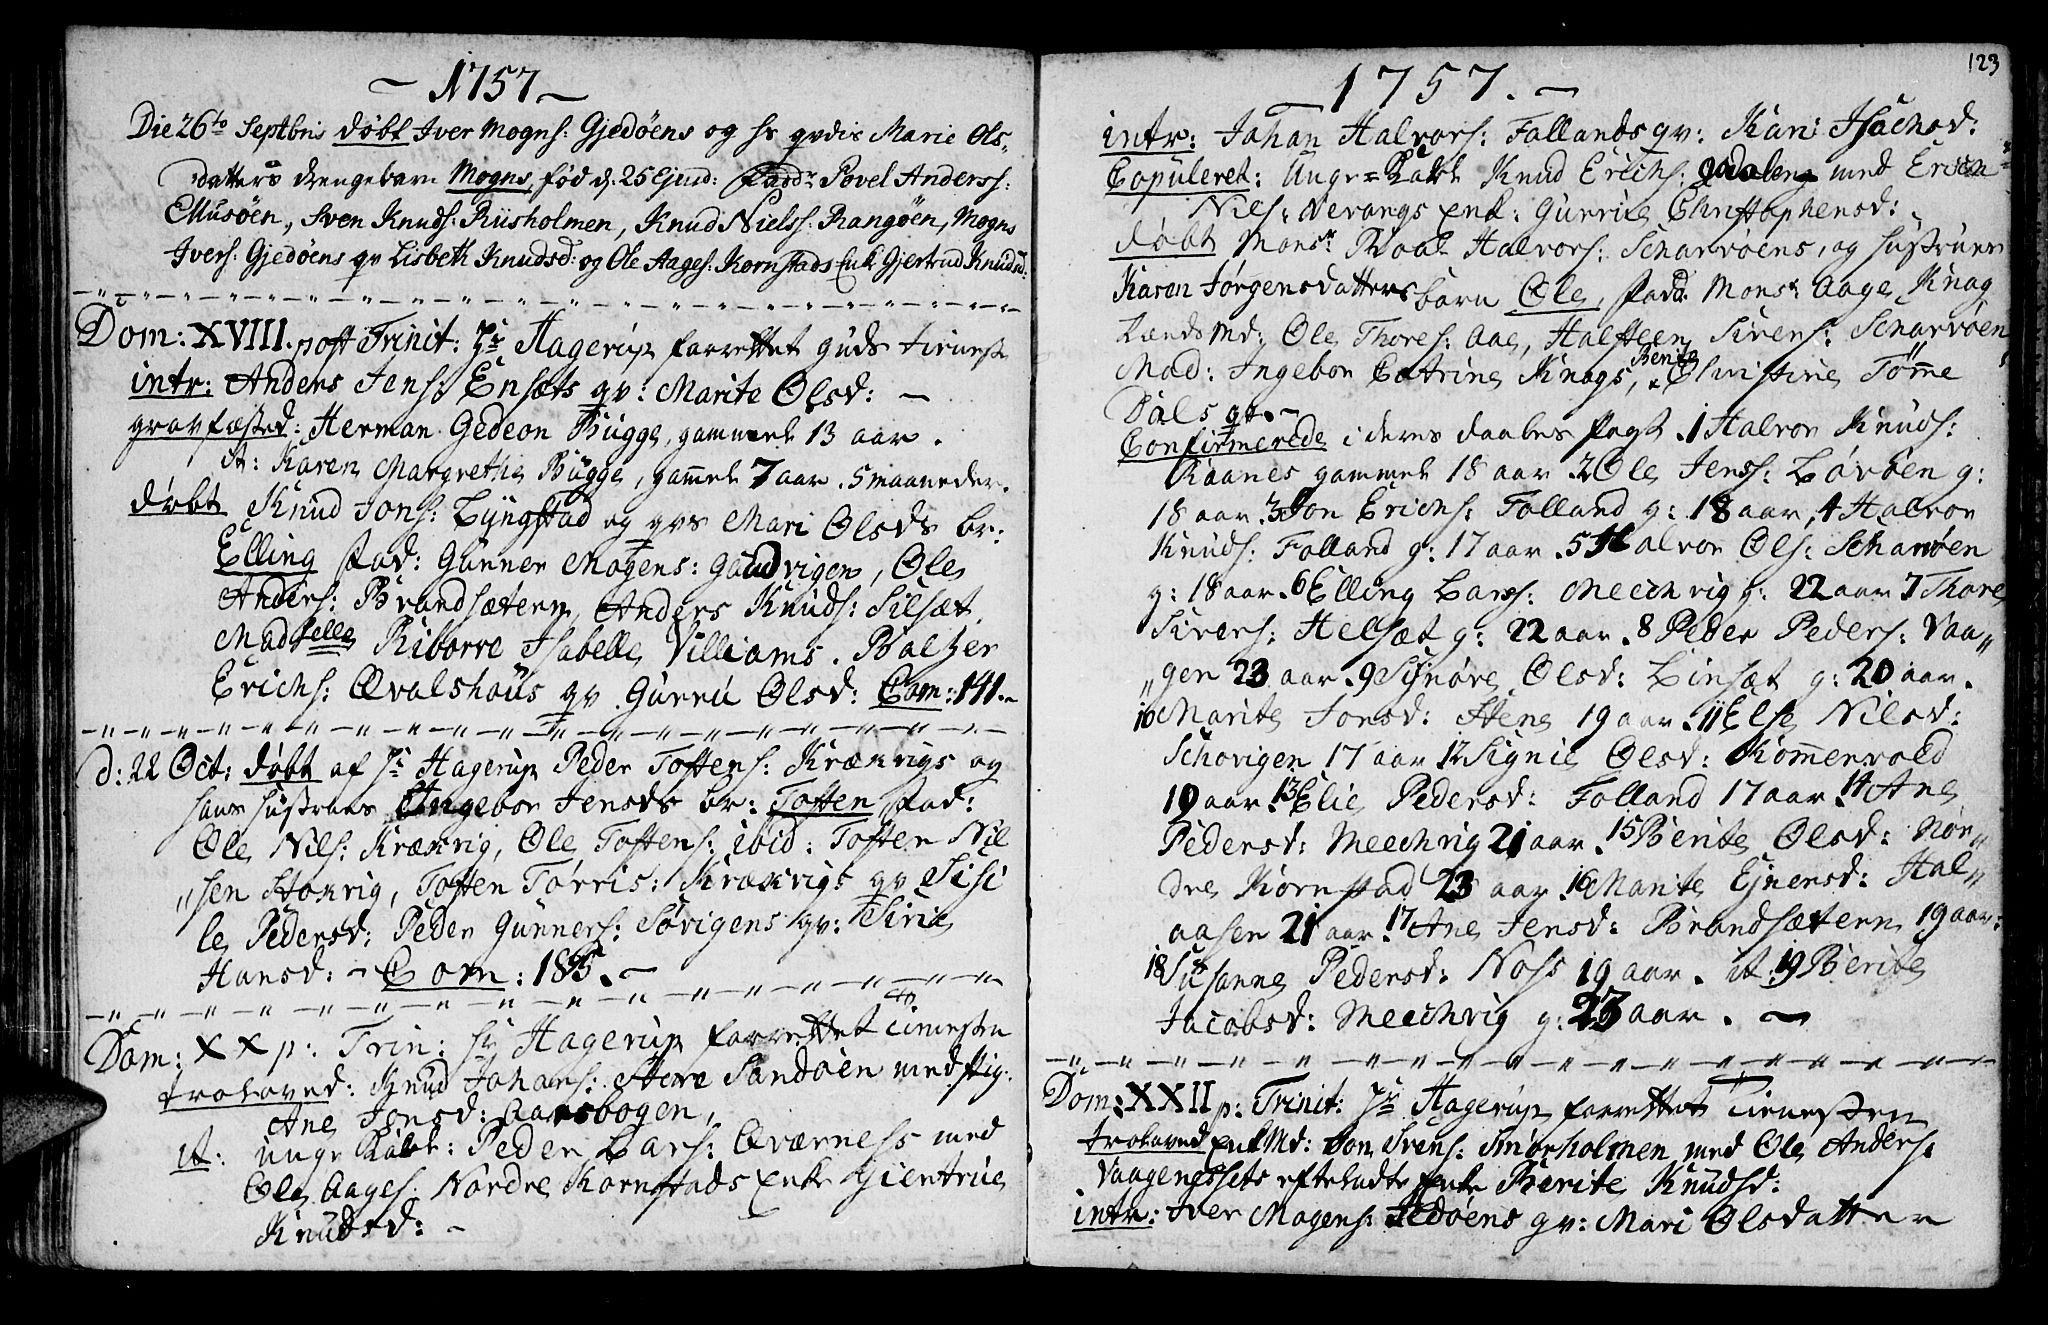 ~ 1757 ~
Die 26to Septbris døbt Iver Mogns: Gjedöens og hs qvdis Marie Ols-
datters drengebarn Mogns, fød d. 25 Ejusd: Faddr Povel Anderss:
Ellusöen, Sven Knuds: Riisholmen, Knud Nielss: Rangöen, Mogns
Ivers: Gjedöens qv Lisbeth Knudsd: og Ole Aages: Kornstads Enk Gjertrud Knudsd:
Dom: XVIII. post Trinit: Hr Hagerup forrettet Guds tienest
intr: Anders Jens: Ensæts qv: Marite Olsd: ~
gravfæsted: Herman Gedeon Bugge, gammel 13 aar.
it: Karen Margrethe Bugge, gamel 7 aar. 5 maaneder.
døbt Knud Jons: Lyngstad og qvs Mari Olsds br:
Elling fad: Gunner Mogens: Gaudvigen, Ole
Anders: Brandsætern, Anders Knuds: Silsæt,
Madselle Riborre Isabelle Villiams. Baltzer
Erichs: Qvalshaüs qv. Gurru Olsd: Com: 141.~
d: 22 Oct: døbt af Hr Hagerup Peder Tostens: Krækvigs og
hans hustrues Ingebor Jensds br: Tosten fad:
Ole Nils: Krækvig, Ole Tostens: ibid: Tosten Nil
"sen Stokvig, Tosten Torris: Krækvigs qv Sisi
le Pedersd: Peder Gunners: Sørvigens qv: Siric
Hansd: ~ Com: 185. ~
Dom: XX p: Trin: Hr Hagerup forrettet Tienesten
troloved: Knud Johans: Store Sandöen med pig:
Ane Jonsd: Aarsbogen,
it: unge Karl: Peder Lars: Qværness med
Ole Aages: Nordre Kornstads Enke Giertrue
Knudsd: ~
123
1757. ~
intr: Johan Halvors: Follands qv: Kari Isachsd:
Copuleret: Unge Karl Knud Erichs: med Erich
Nils: Nerangs Enk: Gurrite Christophensd:
døbt Monsr Roal Halvors: Scharvöens, og hustrues
Karen Jørgensdatters barn Ole, fadd: Monsr Aage Knag
Lænds Md: Ole Thores: Aae, Halsteen Sivers: Scharvöen
Mad: Ingebor Catrine Knags, Berite Christine Tømme
Dals qv. ~
Confirmerede i deres daabes Pagt. 1 Halvor Knuds:
Raanes gammel 18 aar. 2 Ole Jenss: Lovöen g:
18 aar. 3 Jon Erichs: Folland g: 18 aar, 4 Halvor
Knuds: Folland g: 17 aar. 5 Halvor Ols: Scharvöen
g: 18 aar. 6 Elling Larss: Meechvig g: 22 aar 7 Thore
Sivers: Helsæt g: 22 aar. 8 Peder Peders: Vaa„
„gen 23 aar. 9 Signöre Olsd: Linsæt g: 20 aar.
10 Marite Jonsd: Stene 19 aar. 11 Else Nilsd:
Schovigen 17 aar 12 Signie Olsd: Kommervold
19 aar. 13 Elie Pedersd: Folland 17 aar. 14 Ane
Pedersd: Meechvig 21 aar. 15 Berite Olsd: Nor„
dre Kornstad 23 aar 16 Marite Ejnersd: Hal„
aasen 21 aar. 17 Ane Jensd: Brandsætern 19 aar:
18 Susanne Pedersd: Noss 19 aar. it: 19 Berite
Jacobsd: Meechvig g: 23 aar. ~
Dom: XXII p: Trinit: Hr Hagerup forrettet Tienesten
troloved Enk Md: Jon Svens: Smørholmen med Ole Anders:
Vaagenessets efterladte Enke Berite Knudsd:
intr: Iver Mogens: Jedöens qv: Mari Olsdatter